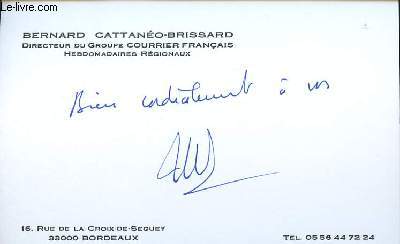 BERNARD CATTANÉO-BRISSARD
DIRECTEUR DU GROUPE COURRIER FRANÇAIS
HEBDOMADAIRES RÉGIONAUX
Bien cordialement à vs
16, RUE DE LA CROIX-DE-SEGUEY
33000 BORDEAUX
TEL. 05 56 44 72 24
le-livre